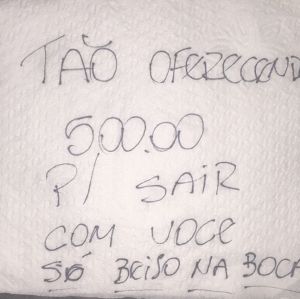 TAÕ OFERECEND
500.00
P/ SAIR
COM VOCE
SÓ BEISO NA BOCA